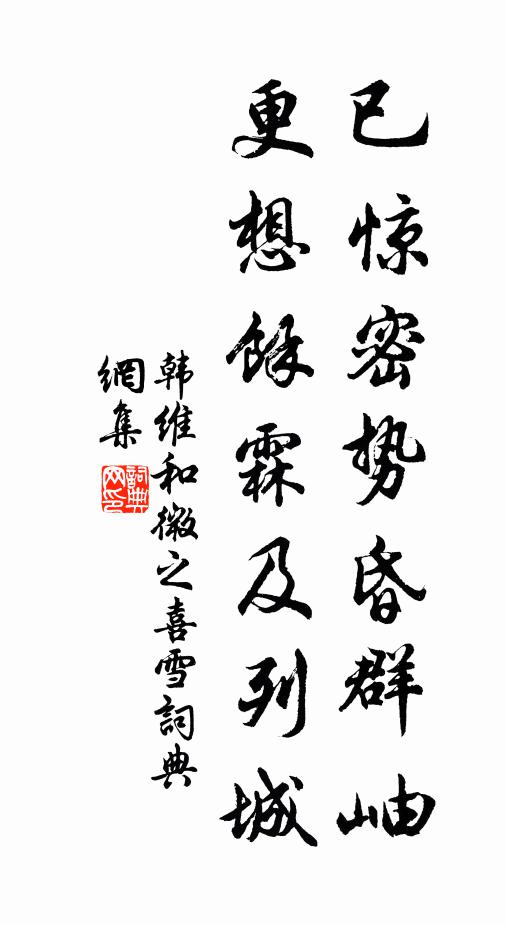 已惊密势昏群岫
更想餘霖及列城
韩维和微之喜雪詞典
網集
詞典
网印